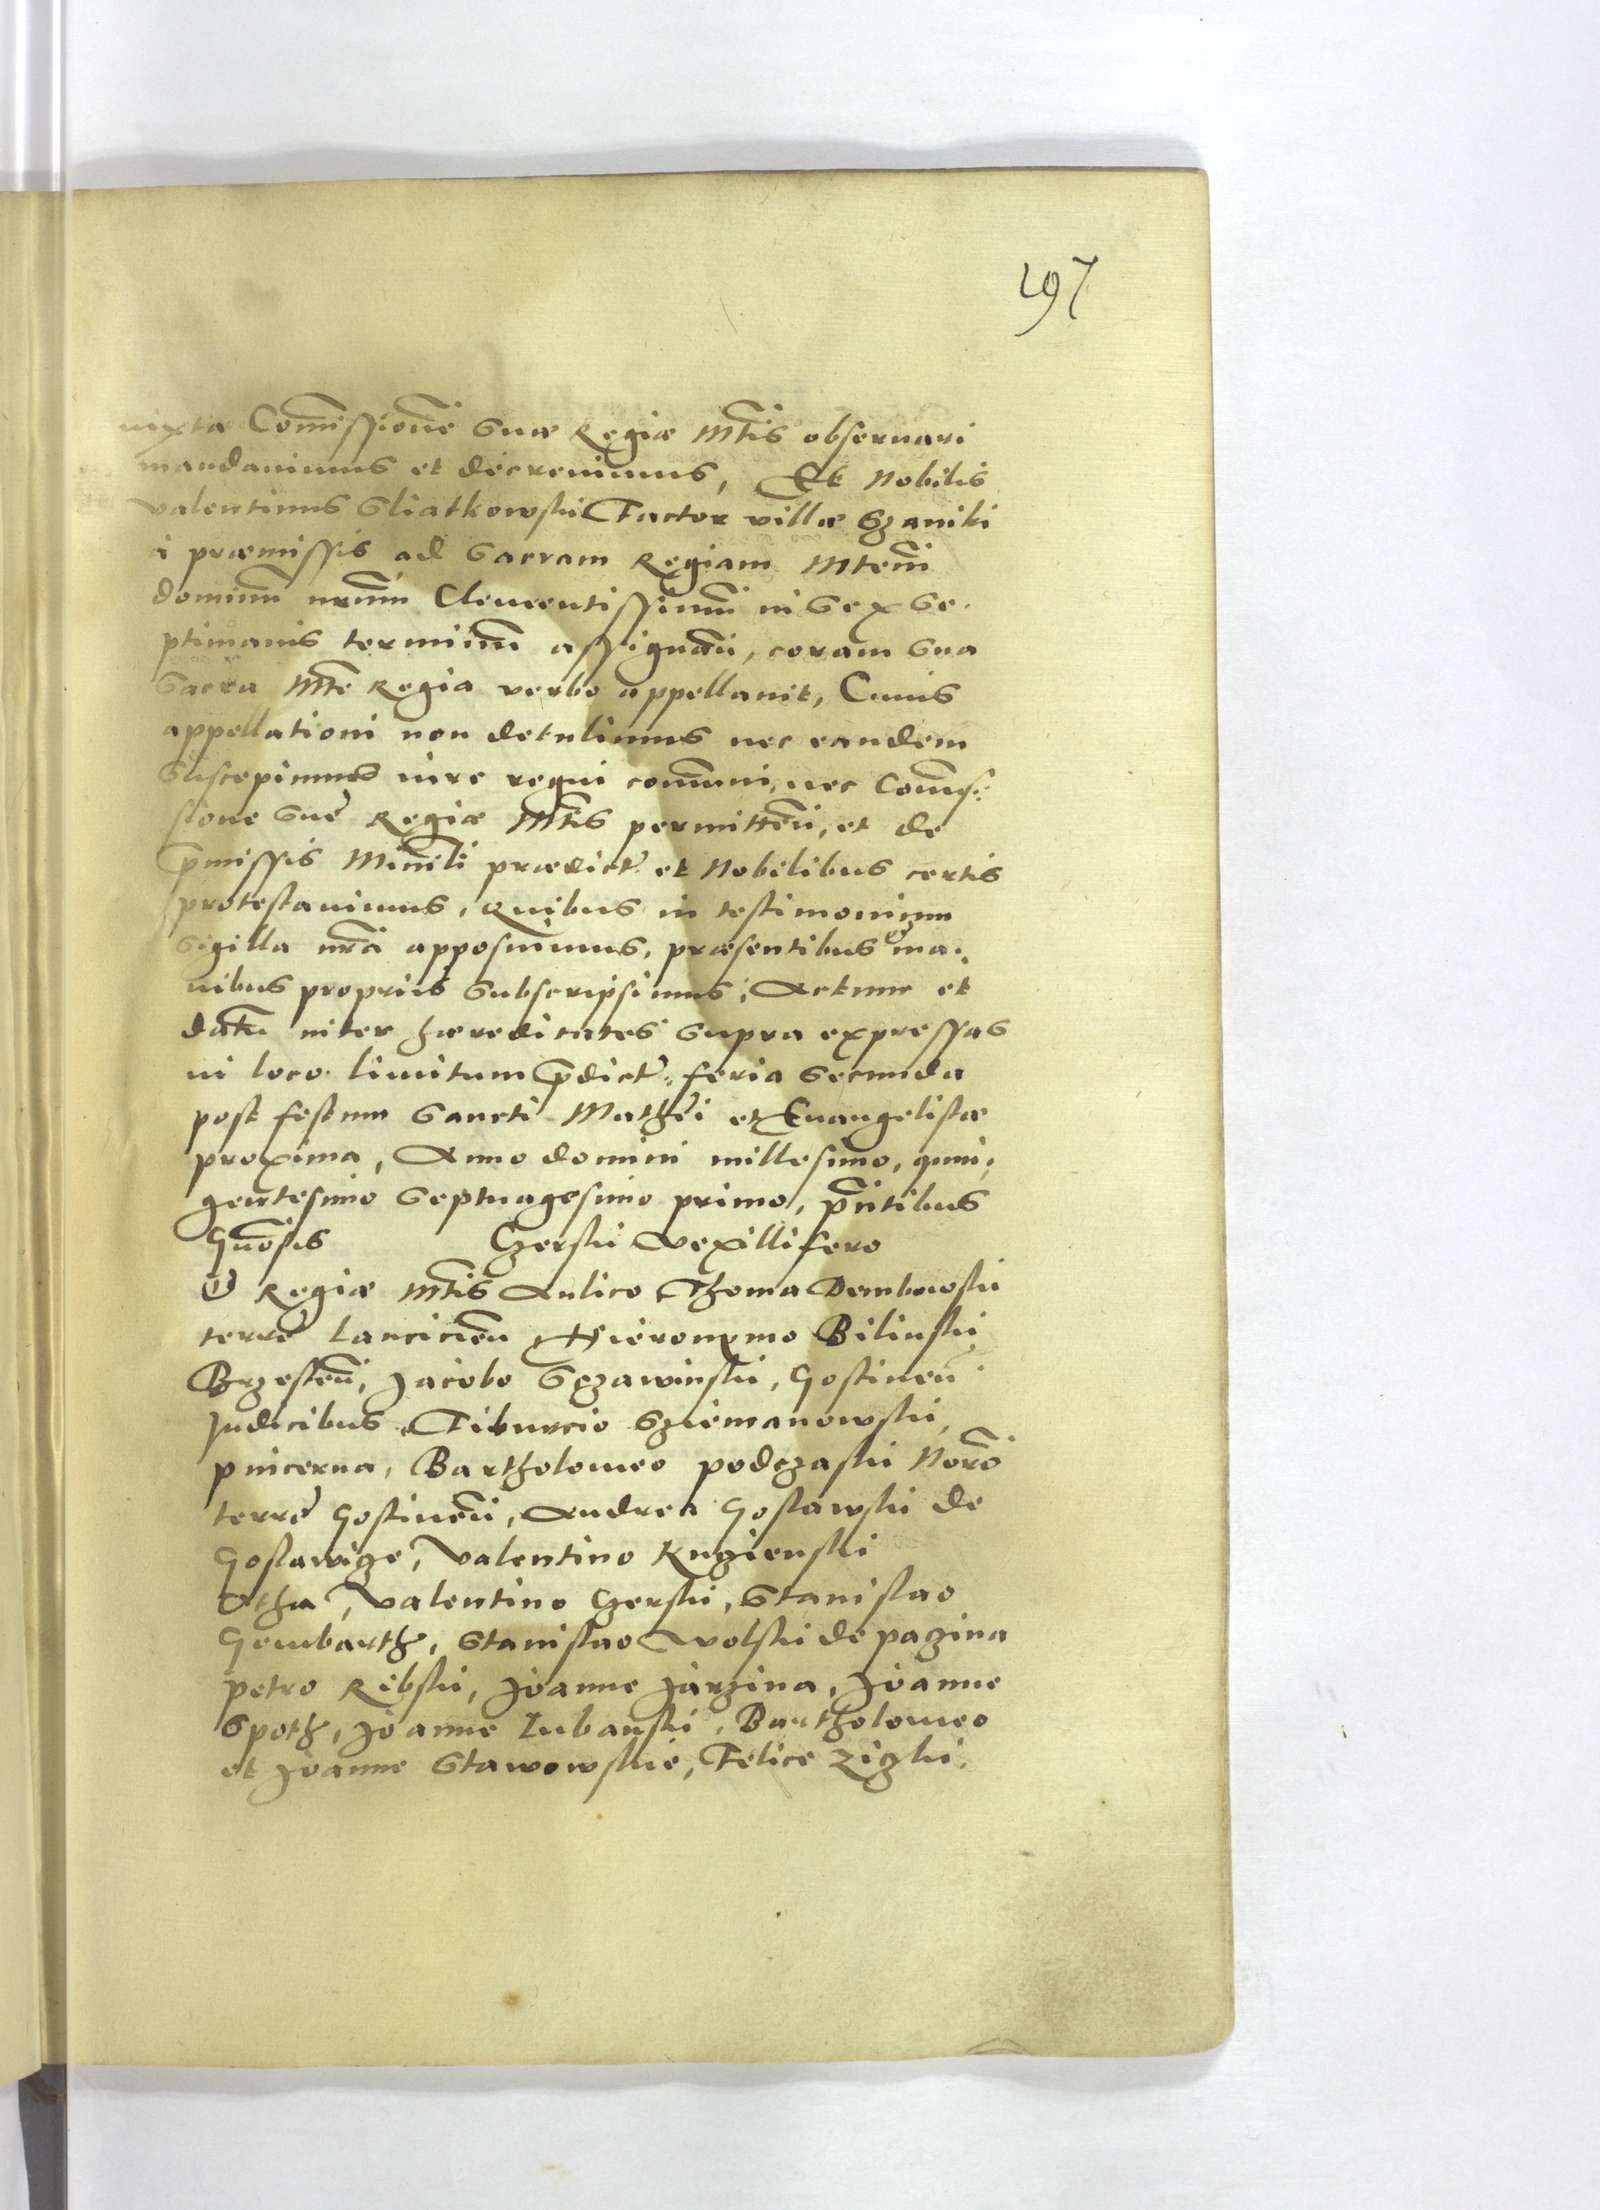 197
iuxta Com̃issionẽ suæ Regiæ Mtĩs obseruari
mandauimus et decreuimus, Et Nobilis
Valentinus Sliatkowski Factor villæ Szaniki
à præmissis ad Sacram Regiam Mtem̃
dominum̃ nrum̃ Clementissimum̃ in Sex Se-
ptimanis terminum̃ assignañ, coram Sua
Sacra Mte Regia verbo appellauit, Cuius
appellationi non detulimus nec eandem
Suscepimus iure regni com̃uni, nec Com̃is-
sione Suę Regiæ Mtĩs permitteñ, et de
p̃missis Minrĩli prædict. et Nobilibus certis
protestauimus, Quibus in testimonium
Sigilla nrã apposuimus, præsentibus & ma-
nibus proprijs Subscripsimus, Actum et
datũ inter hæreditates supra expressas
in loco limitum p̃dict. feria Secunda
post festum Sancti Mathei et Euangelistæ
proxima, Anno domini millesimo, quin-
gentesimo Septuagesimo primo, p̃ntibus
Gñosis Czerski Vexillifero
& Regiæ Mtĩs Aulico Thoma Dembowski
terrę Lancicieñ Hieronymo Bilinski
Brzesteñ, Jacobo Sczawinski, Gostineñ
Judicibus Tiburcio Sziemanowski,
pincerna, Bartholomeo podczaski Norõ
terrę Gostineñ, Andrea Goslawski de
Goslawize, Valentino Kuzienski
Otha, Valentino Czerski, Stanislao
Gembarth, Stanislao Wolski de pazina
petro Ribski, Joanne Jarzina, Joanne
Spoth, Joanne Lubanski, Bartholomeo
et Joanne Stawowskie, Felice Ziczki,